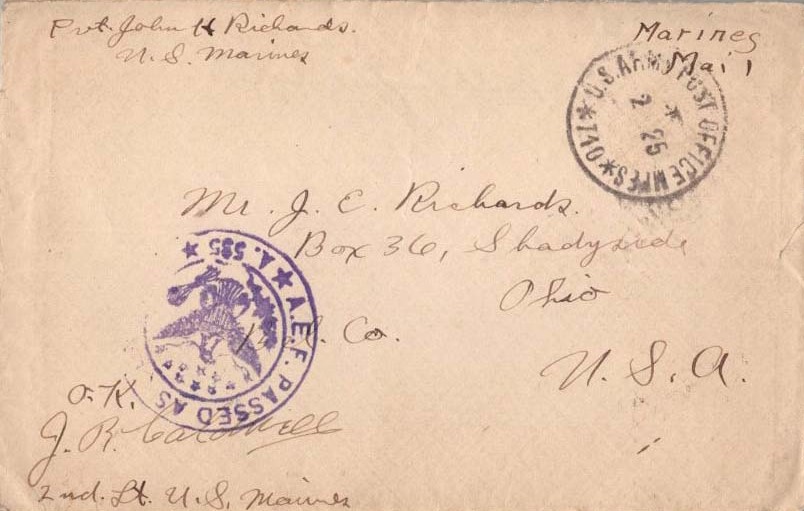 Pvt. John H Richards.
U.S. Marines
Marines
Mail
U.S. ARMY POST OFFICE MPES * 740 *
* 2 25
Mr. J. E. Richards.
Box 36, Shadyside
Ohio
Co.
U. S. A.
* A.E.F. PASSED AS
A. 585 *
O.K.
J. R. Cardwell
2nd. Lt. U.S. Maines